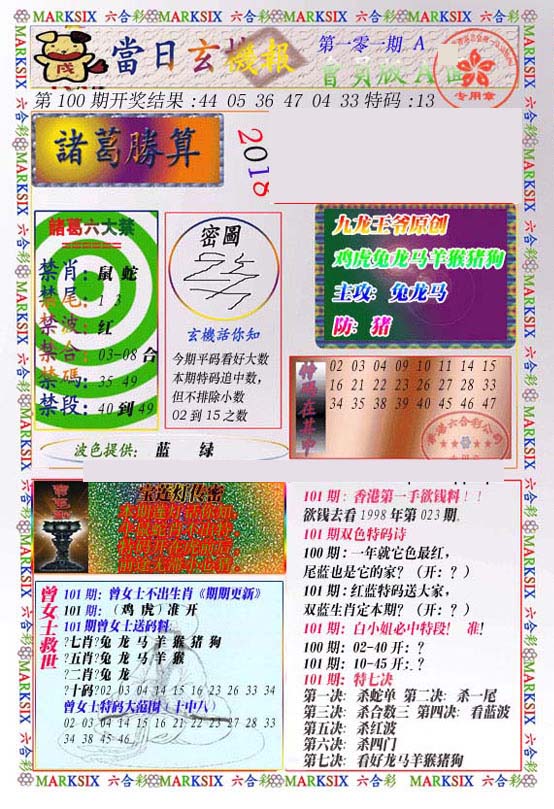 MARKSIX 六合彩 MARKSIX 六合彩 MARKSIX 六合彩 MARKSIX 六合彩
當日玄機報
第一零一期 A
會員版A面
专用章
第100期开奖结果:44 05 36 47 04 33特码:13
諸葛勝算
2018
諸葛六大禁
禁肖:鼠 蛇
禁尾:1 3
禁波:红
禁合:03-08合
禁碼:35 49
禁段:40到49
密圖
玄機話你知
今期平码看好大数
本期特码追中数,
但不排除小数
02到15之数
九龙王爷原创
鸡虎兔龙马羊猴猪狗
主攻: 兔龙马
防: 猪
特码在其中
02 03 04 09 10 11 14 15
16 21 22 23 26 27 28 33
34 35 38 39 40 45 46 47
波色提供: 蓝 绿
宝莲灯传密
101期: 香港第一手欲钱料!!
欲钱去看1998年第023期.
101期双色特码诗
100期:一年就它色最红,
尾蓝也是它的家?(开:?)
101期:红蓝特码送大家,
双蓝生肖定本期?(开:?)
101期: 白小姐必中特段! 准!
100期: 02-40 开:?
101期: 10-45 开:?
101期: 特七决
第一决: 杀蛇单 第二决: 杀一尾
第三决: 杀合数三 第四决: 看蓝波
第五决: 杀红波
第六决: 杀四门
第七决: 看好龙马羊猴猪狗
曾女士救世
101期:曾女士不出生肖《期期更新》
101期:(鸡虎)准开
101期曾女士送码料:
?七肖?兔龙马羊猴猪狗
?五肖?兔龙马羊猴
?二肖?兔龙
?十码?02 03 04 14 15 16 23 26 33 34
曾女士特码大范围(十中八)
02 03 04 14 15 16 21 22 23 27 28 33
34 38 45 46
MARKSIX 六合彩 MARKSIX 六合彩 MARKSIX 六合彩 MARKSIX 六合彩